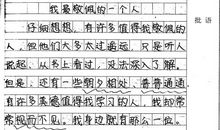 我最敬佩的一个人
批语
仔细想想，有许多值得我敬佩的
人，但他们大多太过遥远，只是听人
说起，从书上看过，没法深入了解。
但是，还有一些朝夕相处、普普通通
有许多美德值得我学习的人，我却常
常视而不见。我身边就有那么一位。